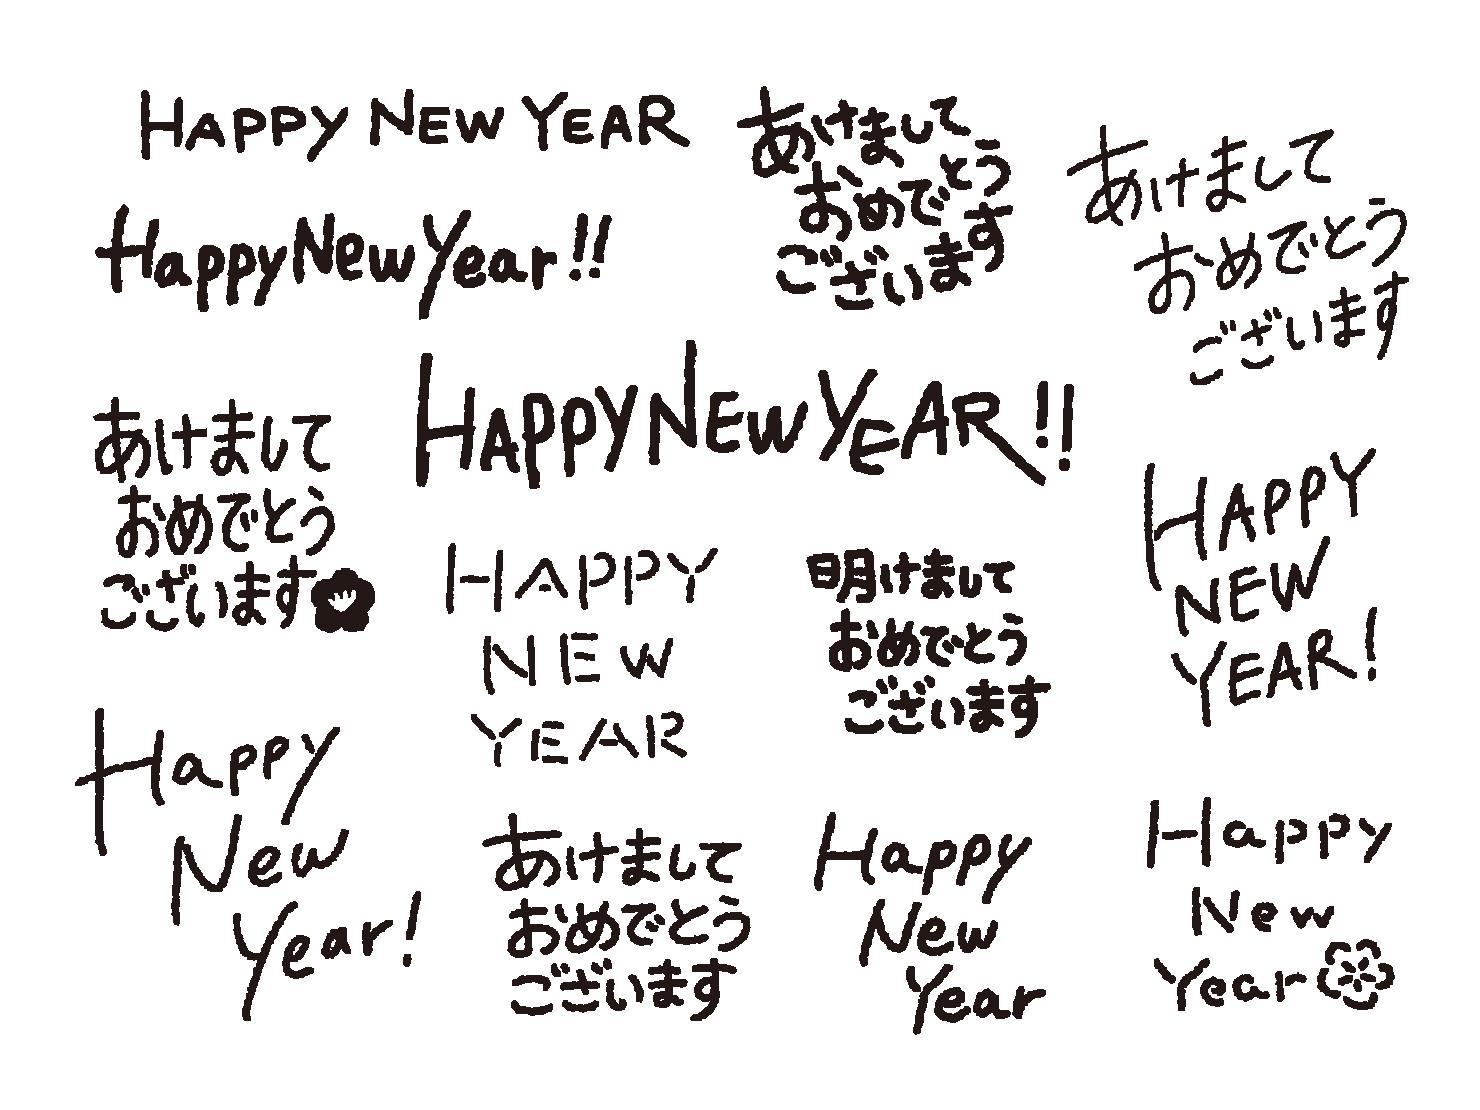 HAPPY NEW YEAR
Happy New Year!!
あけまして
おめでとう
ございます
あけまして
おめでとう
ございます
あけまして
おめでとう
ございます
HAPPY NEW YEAR!!
HAPPY
NEW
YEAR!
HAPPY
NEW
YEAR
明けまして
おめでとう
ございます
Happy
New
Year!
あけまして
おめでとう
ございます
Happy
New
Year
Happy
New
Year